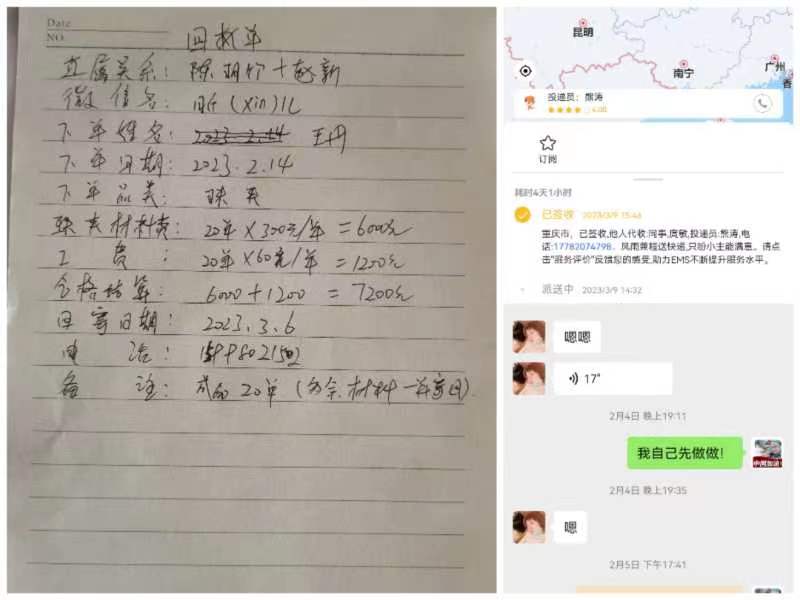 Date
NO.
回执单
直属关系:
微信名: 昕(xin)儿
下单姓名: 2023.2.14 王丹
下单日期: 2023.2.14
下单品类: 
材料费: 20单×300元/单=6000元
工费: 20单×60元/单=1200元
合格结算: 6000+1200=7200元
回寄日期: 2023.3.6
电话:
备注: 成品20单(含余材料一并寄回)
昆明
南宁
广州
香
投递员:熊涛
4.00
订阅
耗时4天1小时
已签收 2023/3/9 15:46
重庆市,已签收,他人代收:同事,虞敏,投递员:熊涛,电
话:17782074798,风雨兼程送快递,只盼小主能满意。请点
击"服务评价"反馈您的感受,助力EMS不断提升服务水平。
派送中 2023/3/9 14:32
嗯嗯
17"
2月4日 晚上19:11
我自己先做做!
2月4日 晚上19:35
嗯
2月5日 下午17:41